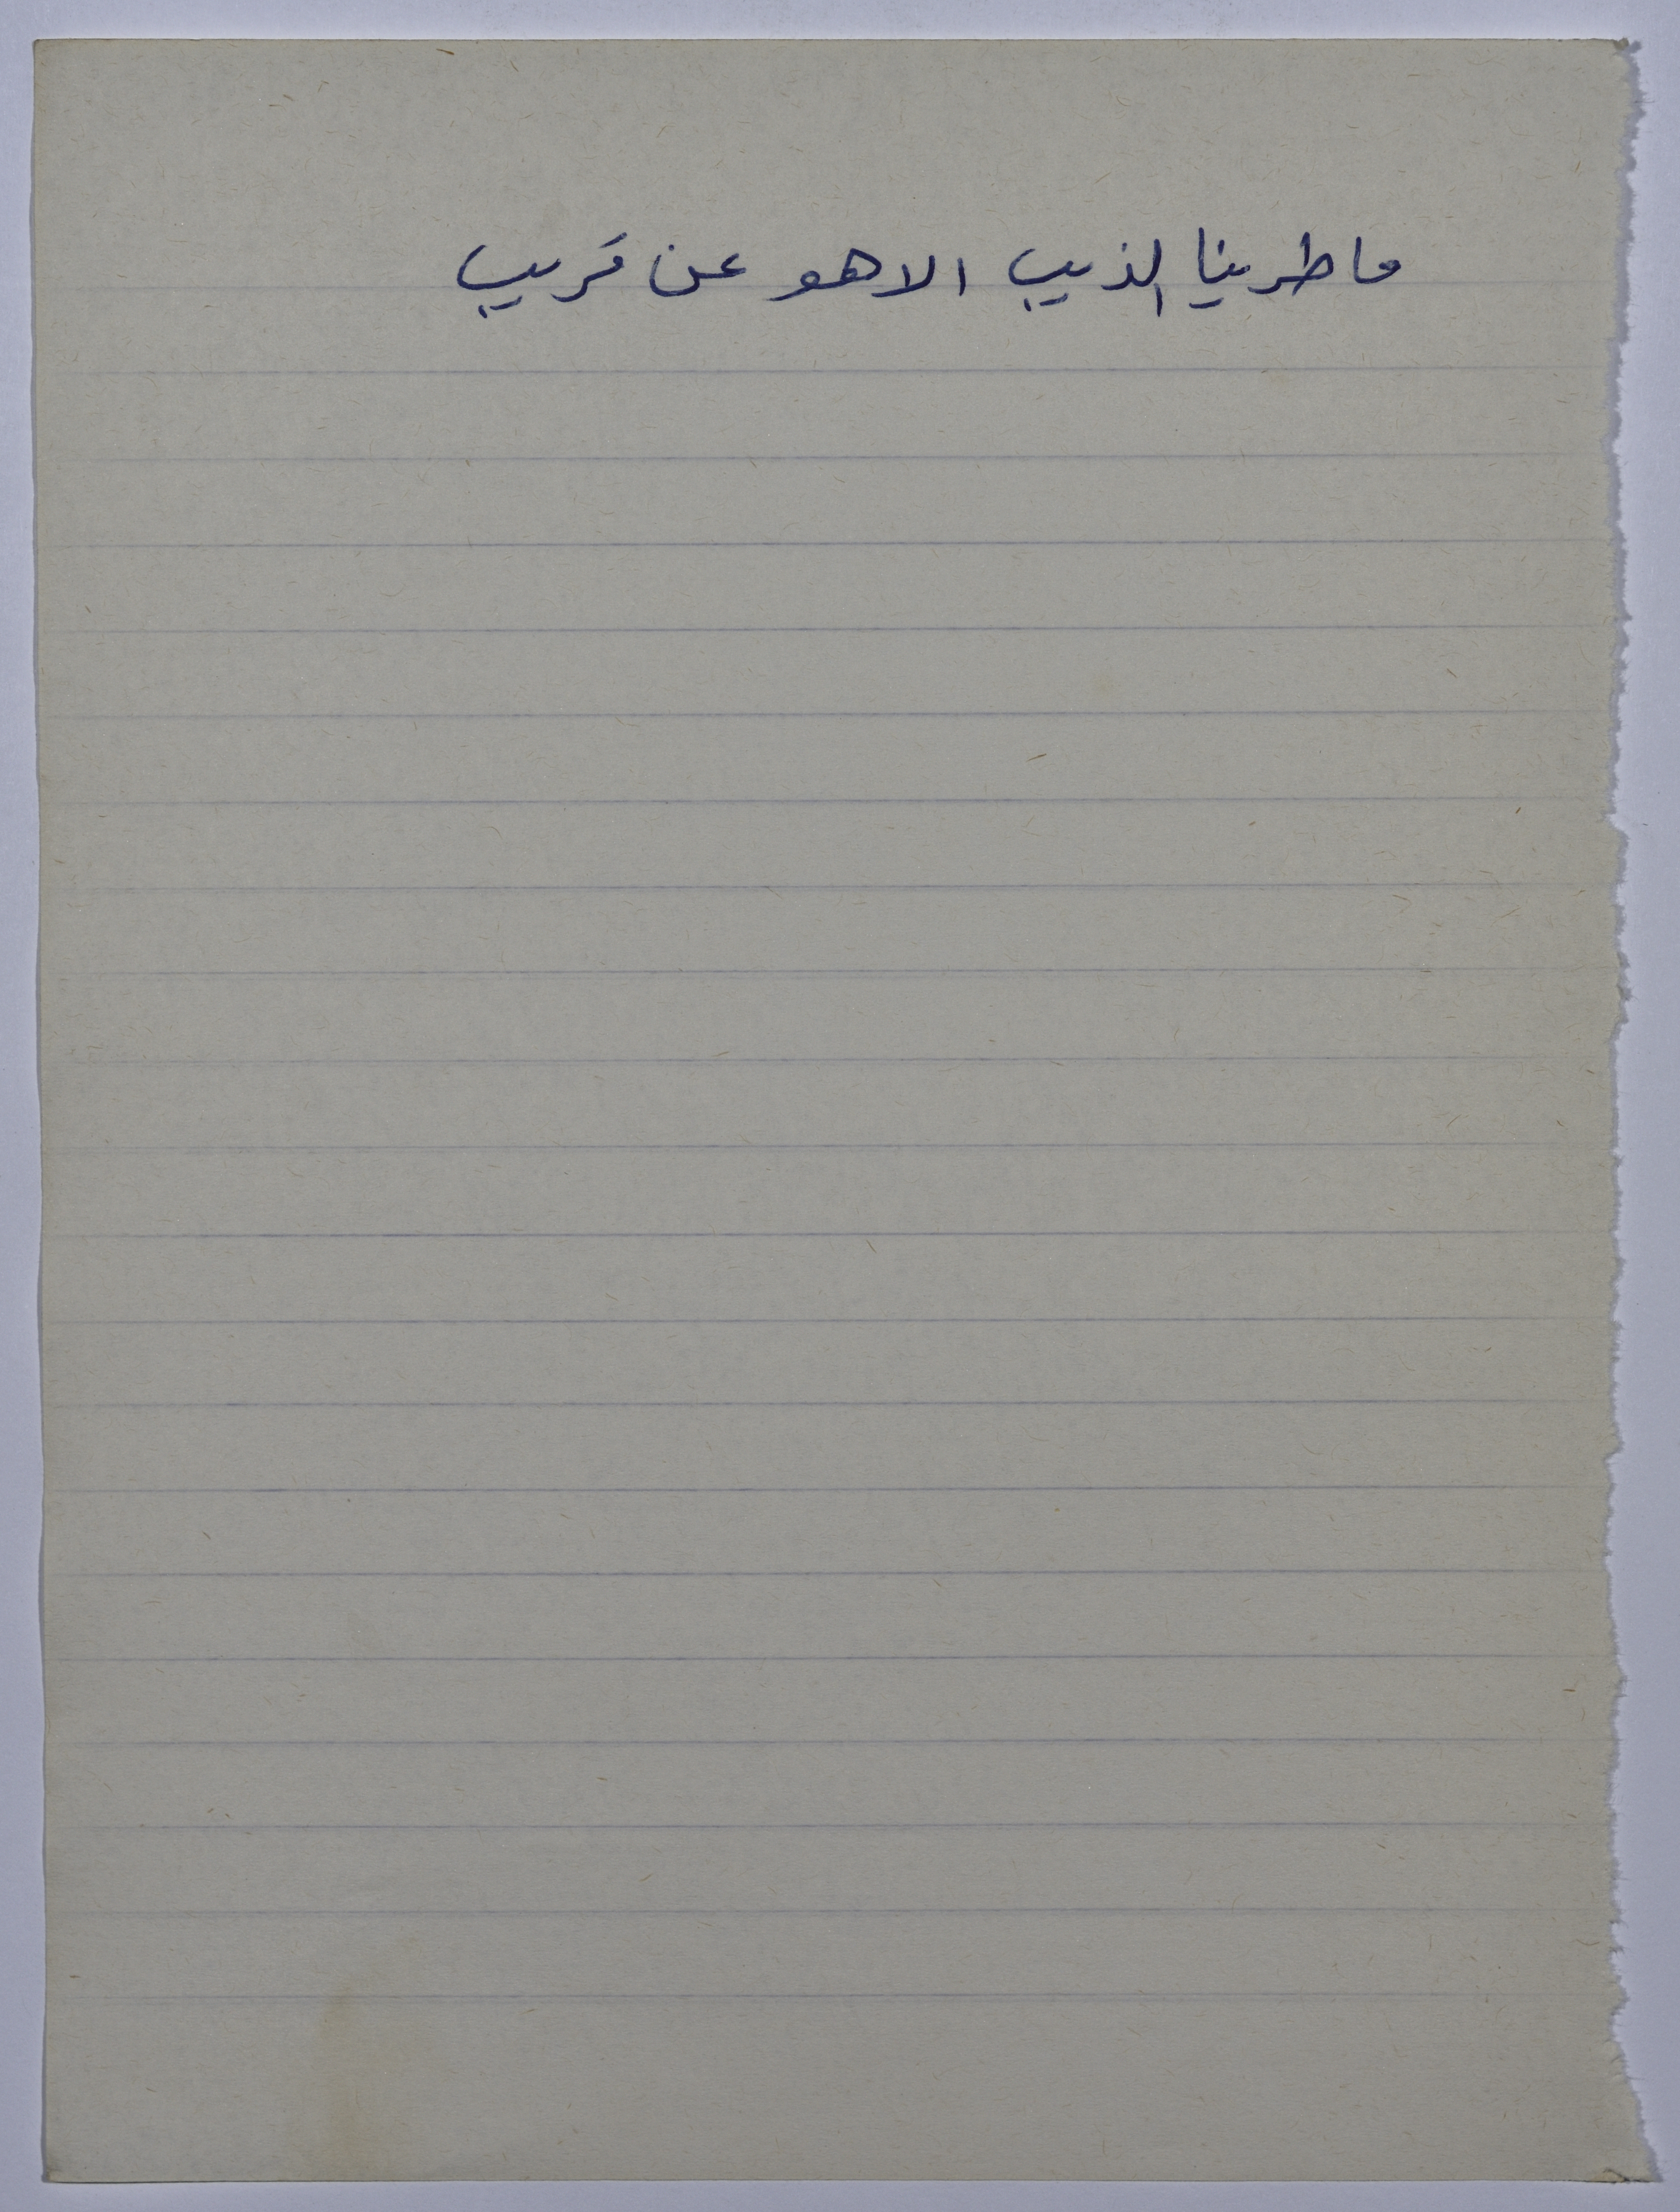 ما طرينا الذيب الا هو عن قريب